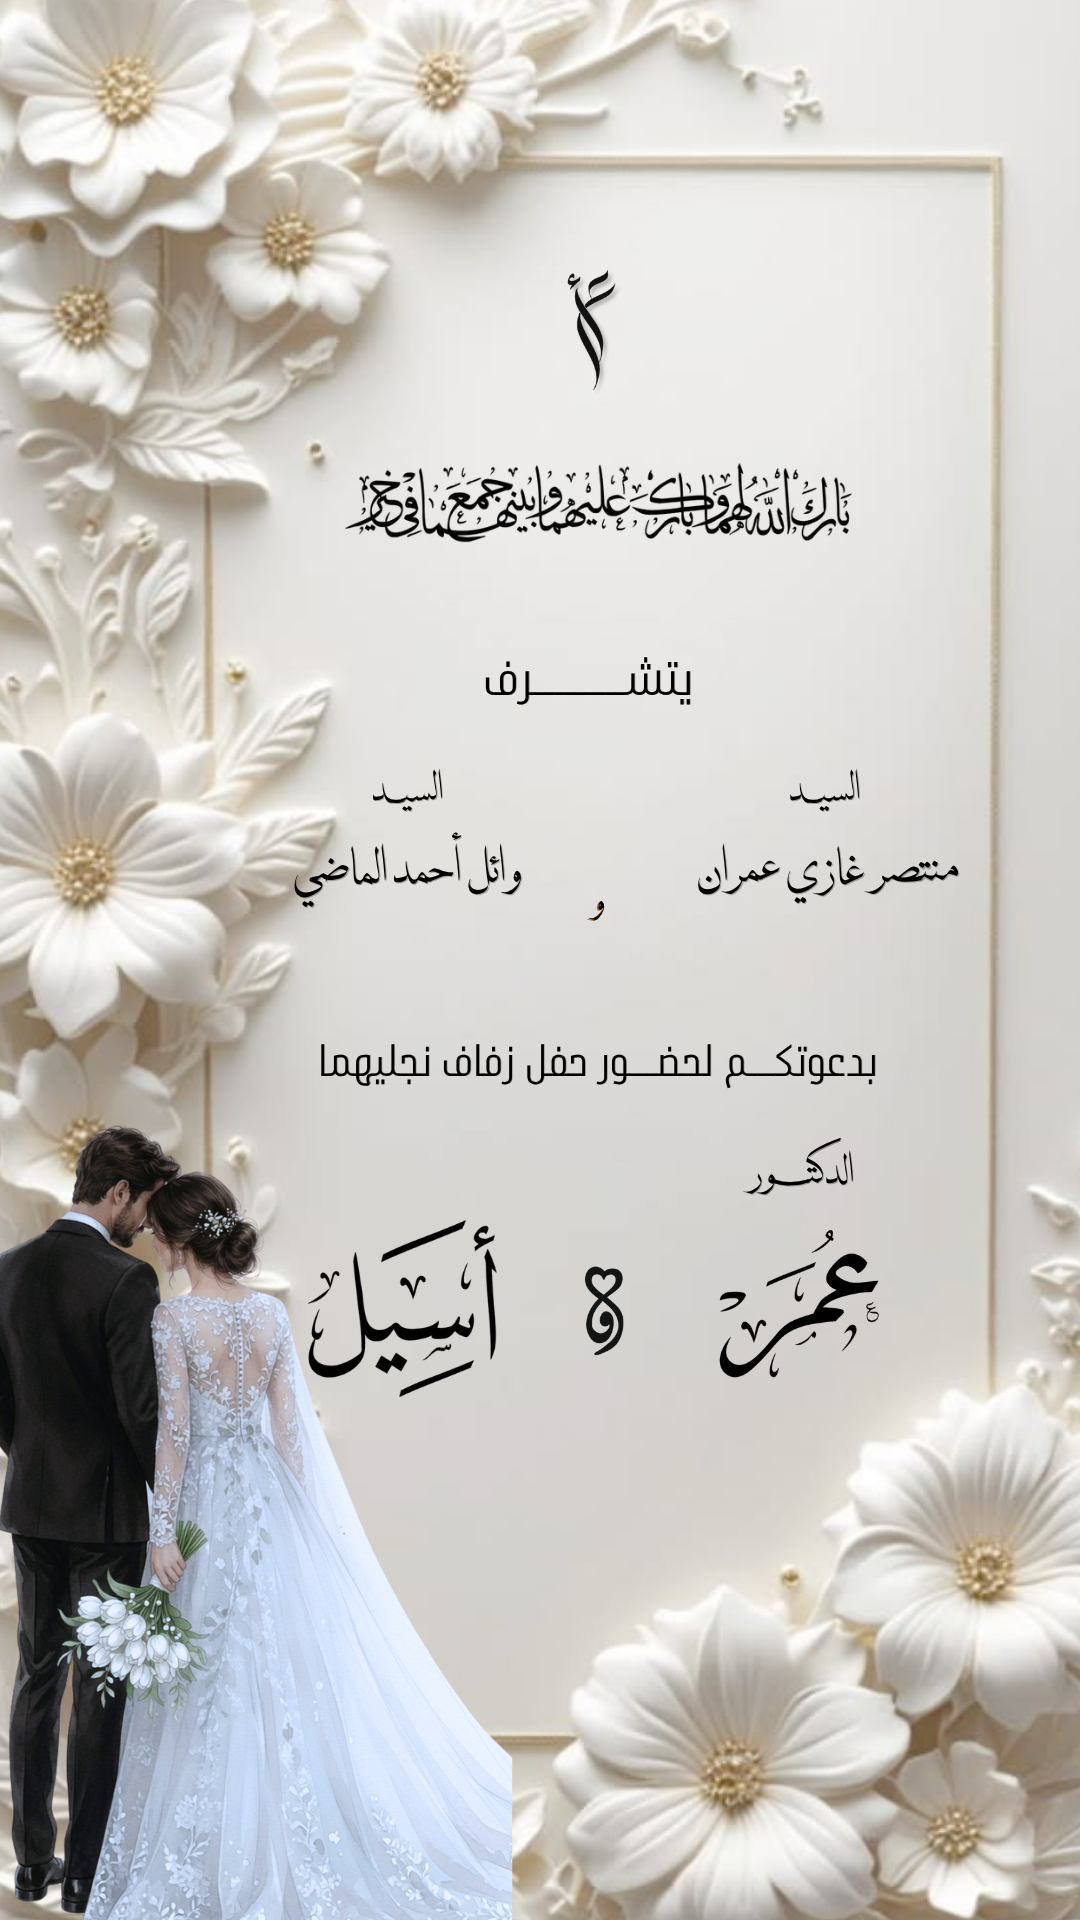 بارك الله لهما وبارك عليهما وجمع بينهما في خير
يتشـــــــرف
السيـد
السيـد
منتصر غازي عمران
و
وائل أحمد الماضي
بدعوتكـــم لحضـــور حفل زفاف نجليهما
الدكتـــور
عُمَرْ
و
أَسِيَل